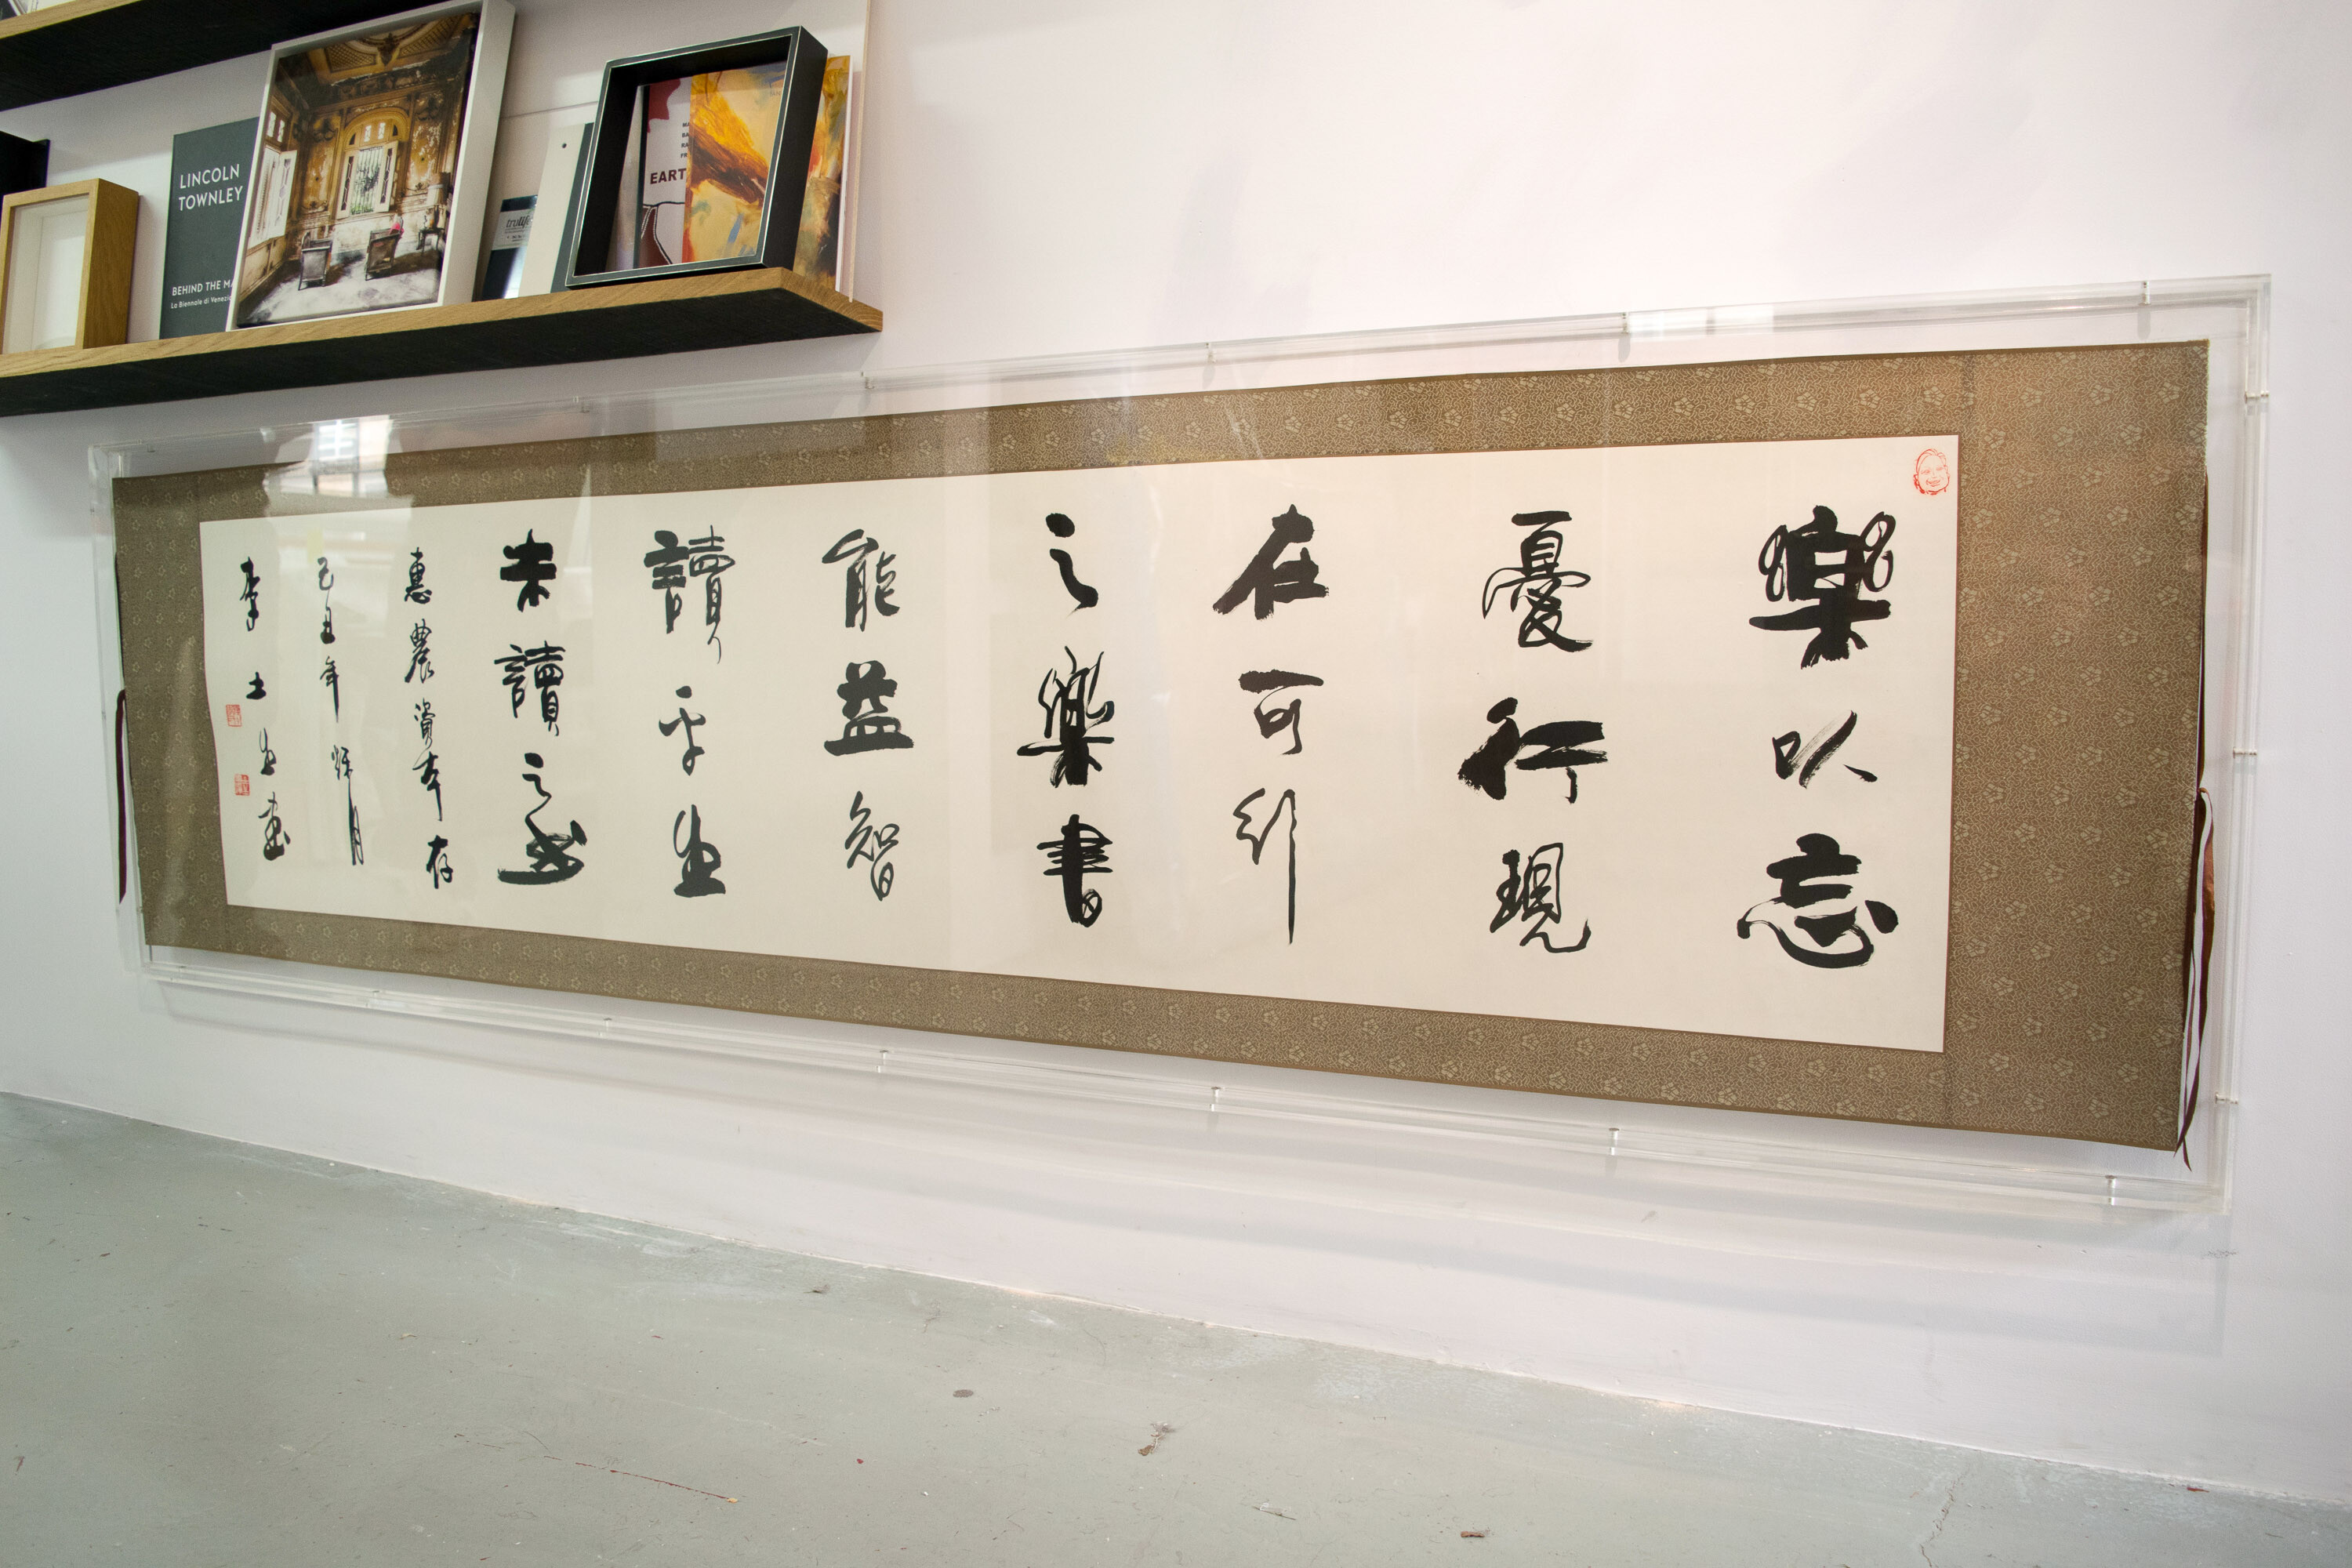 LINCOLN
TOWNLEY
BEHIND THE MA
La Biennale di Venezi
EART
樂以忘
憂行現
在可行
之樂書
能益智
讀平生
未讀之書
惠農資本存
己丑年秌月
李士生